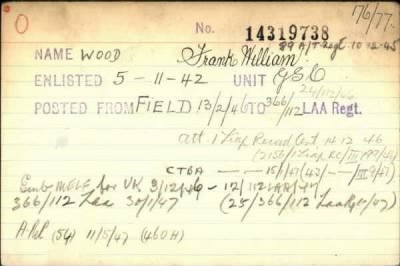 O
7/6/77
No. 14319738
89 A/T Regt 10-12-45
NAME WOOD Frank William.
ENLISTED 5-11-42 UNIT GSC
24/112/46
POSTED FROM FIELD 13/2/46 TO 366/112 LAA Regt.
att. 1 Liap Record Cert. 14-12-46
(2156/1 Liap RC/III/197/46)
CTBA — — 15/1/47 (43) — — III/9/47)
Emb MELF for UK 3/12/46 - 12/112 LAA/47
366/112 Laa 30/1/47 (25/366/112 LaaRgt/47)
A Rel (56) 11/5/47 (460H)